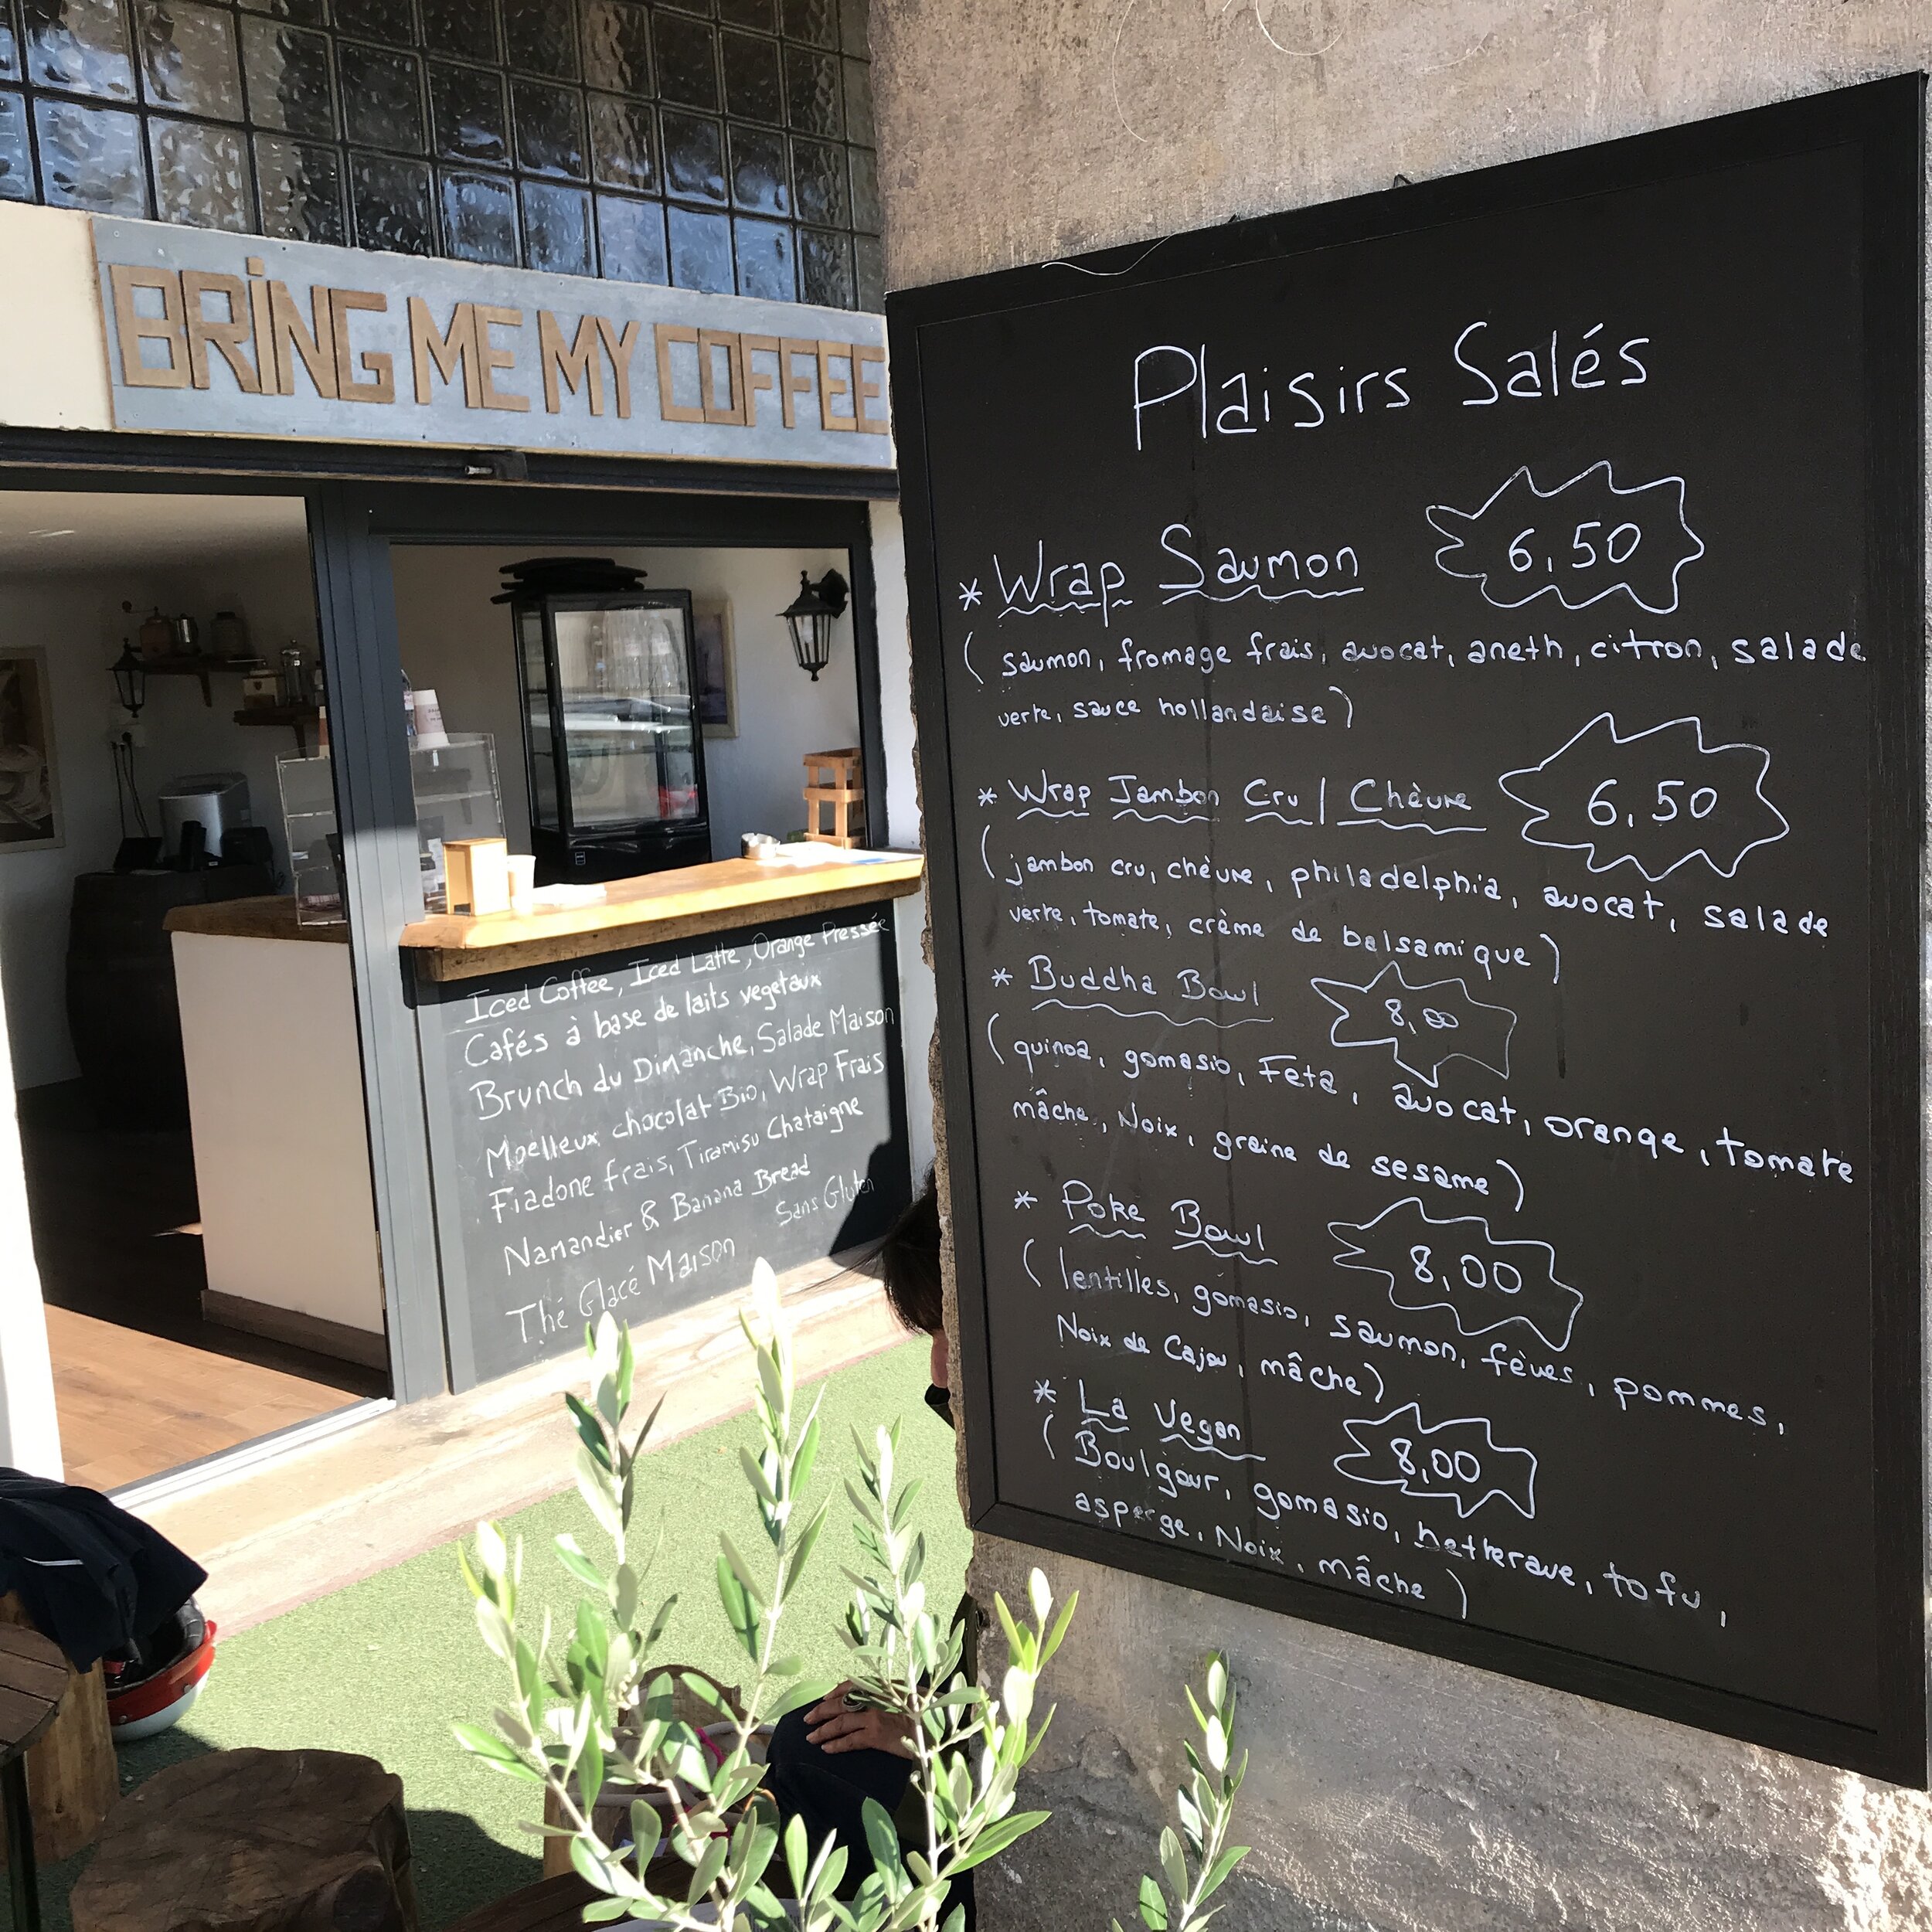 BRiNG ME MY COFFEE
Iced Coffee, Iced Latte, Orange Pressée
Cafés à base de laits vegetaux
Brunch du Dimanche, Salade Maison
Moelleux chocolat Bio, Wrap Frais
Fiadone frais, Tiramisu Chataigne
Namandier & Banana Bread
Sans Gluten
Thé Glacé Maison
Plaisirs Salés
* Wrap Saumon 6,50
( saumon, fromage frais, avocat, aneth, citron, salade
verte, sauce hollandaise )
* Wrap Jambon Cru / Chèvre 6,50
( jambon cru, chèvre, philadelphia, avocat, salade
verte, tomate, crème de balsamique )
* Buddha Bowl 8,00
( quinoa, gomasio, Feta, avocat, orange, tomate
mâche, Noix, graine de sesame )
* Poke Bowl 8,00
( lentilles, gomasio, saumon, fèves, pommes,
Noix de Cajou, mâche )
* La Vegan 8,00
( Boulgour, gomasio, betterave, tofu,
asperge, Noix, mâche )